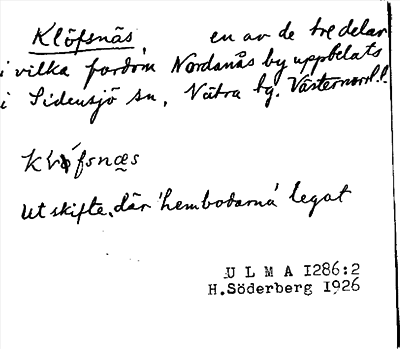 Klöfsnäs, en av de tre delar
i vilka fordom Nordanås by uppdelats
i Sidensjö sn, Nätra tg. Västernorrl.l.
Utskifte, där 'hembodarna' legat
U L M A 1286:2
H.Söderberg 1926